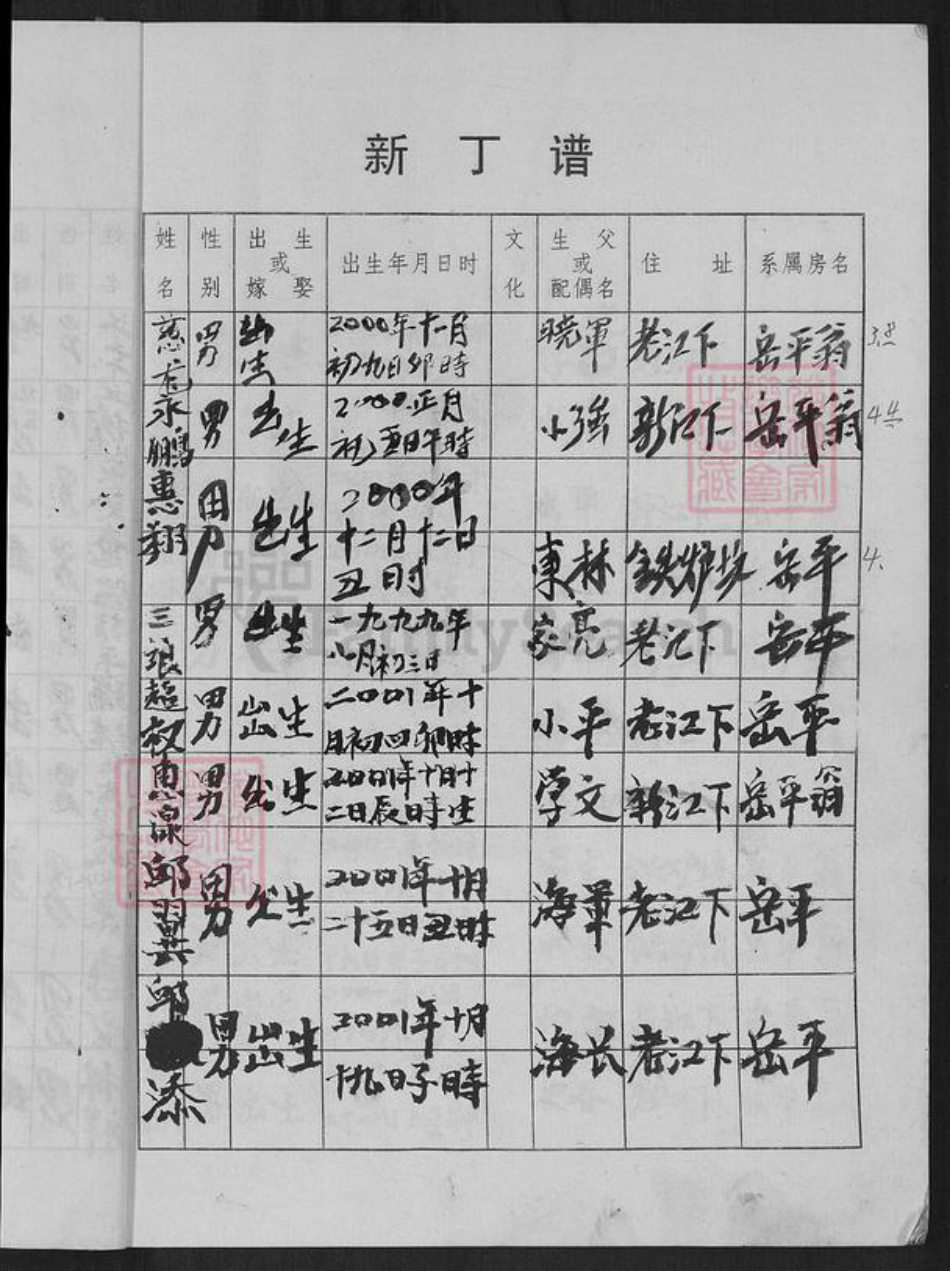 新丁谱
姓名 性别 出生或嫁娶 出生年月日时 文化 生父或配偶名 住址 系属房名
男 出生 2000年十一月初九日卯時 曉軍 老江下 岳平翁
永鹏 男 出生 2000.正月初五日午時 小強 新江下 岳平翁
惠翔 男 出生 2000年十二月十二日丑日时 東林 鉄炉坊 岳平
三浪 男 出生 一九九九年八月初三日 家亮 老江下 岳平
超权 男 出生 二00一年十月初四卯時 小平 老江下 岳平
惠 男 出生 2001年十月十二日辰時生 学文 新江下 岳平翁
邱翼 男 出生 2001年十月二十五日丑时 海軍 老江下 岳平
邱添 男 出生 2001年十月十九日子時 海长 老江下 岳平
FamilySearch